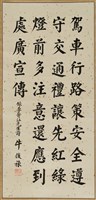 駕車行路策安全遵
守交通禮讓先紅綠
燈前多注意還應到
處廣宣傳